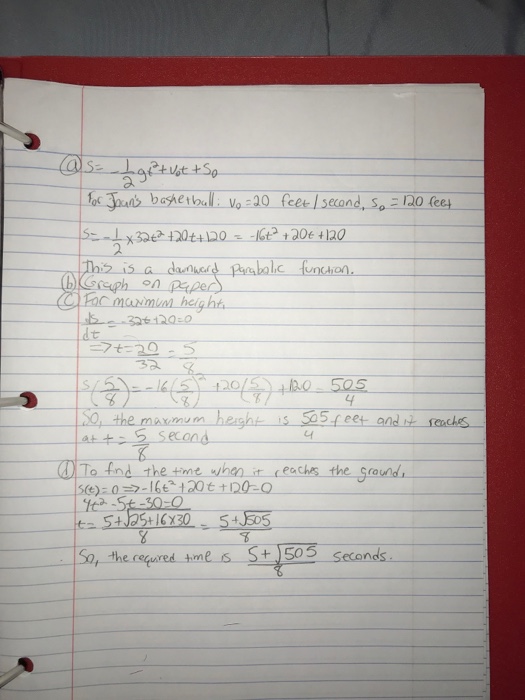 ⓐ S= -1/2 gt²+v₀t +S₀
For Joan's basketball: v₀ =20 feet/second, S₀ = 120 feet
S= -1/2 x 32t² +20t+120 = -16t² +20t +120
This is a downward parabolic function.
ⓑ (Graph on paper)
ⓒ For maximum height,
ds/dt = -32t+20=0
=> t= 20/32 = 5/8
s(5/8) = -16(5/8)² +20(5/8) +120 = 505/4
So, the maximum height is 505/4 feet and it reaches
at t = 5/8 second
ⓓ To find the time when it reaches the ground,
s(t)=0 => -16t² +20t +120=0
4t²-5t-30=0
t= 5+√25+16x30/8 = 5+√505/8
So, the required time is 5+√505/8 seconds.